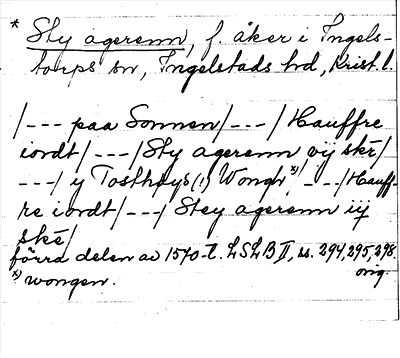 * Sty agerenn, f. åker i Ingels-
torps sn, Ingelstads hd, Krist. l.
/--- paa Sonnen/---/Hauffre
iordt/---/Sty agerenn vij ske/
---/ y Tosthøys(!) Wongh *), ---/Hauff-
re iordt/---/ Stey agerenn iij
ske/
förra delen av 1570-t. LSLB II, ss. 294, 295, 298.
orig.
*) wongen.